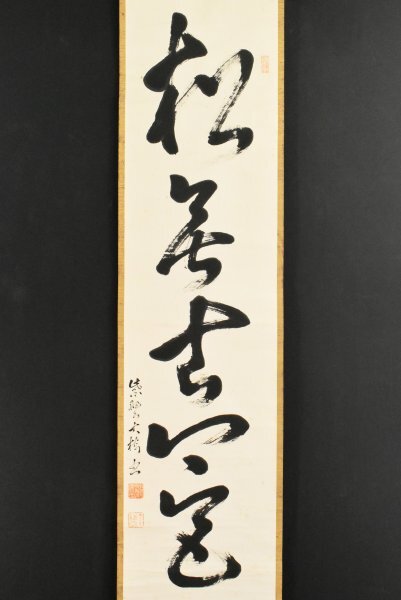 松無古今色
紫野大橋書